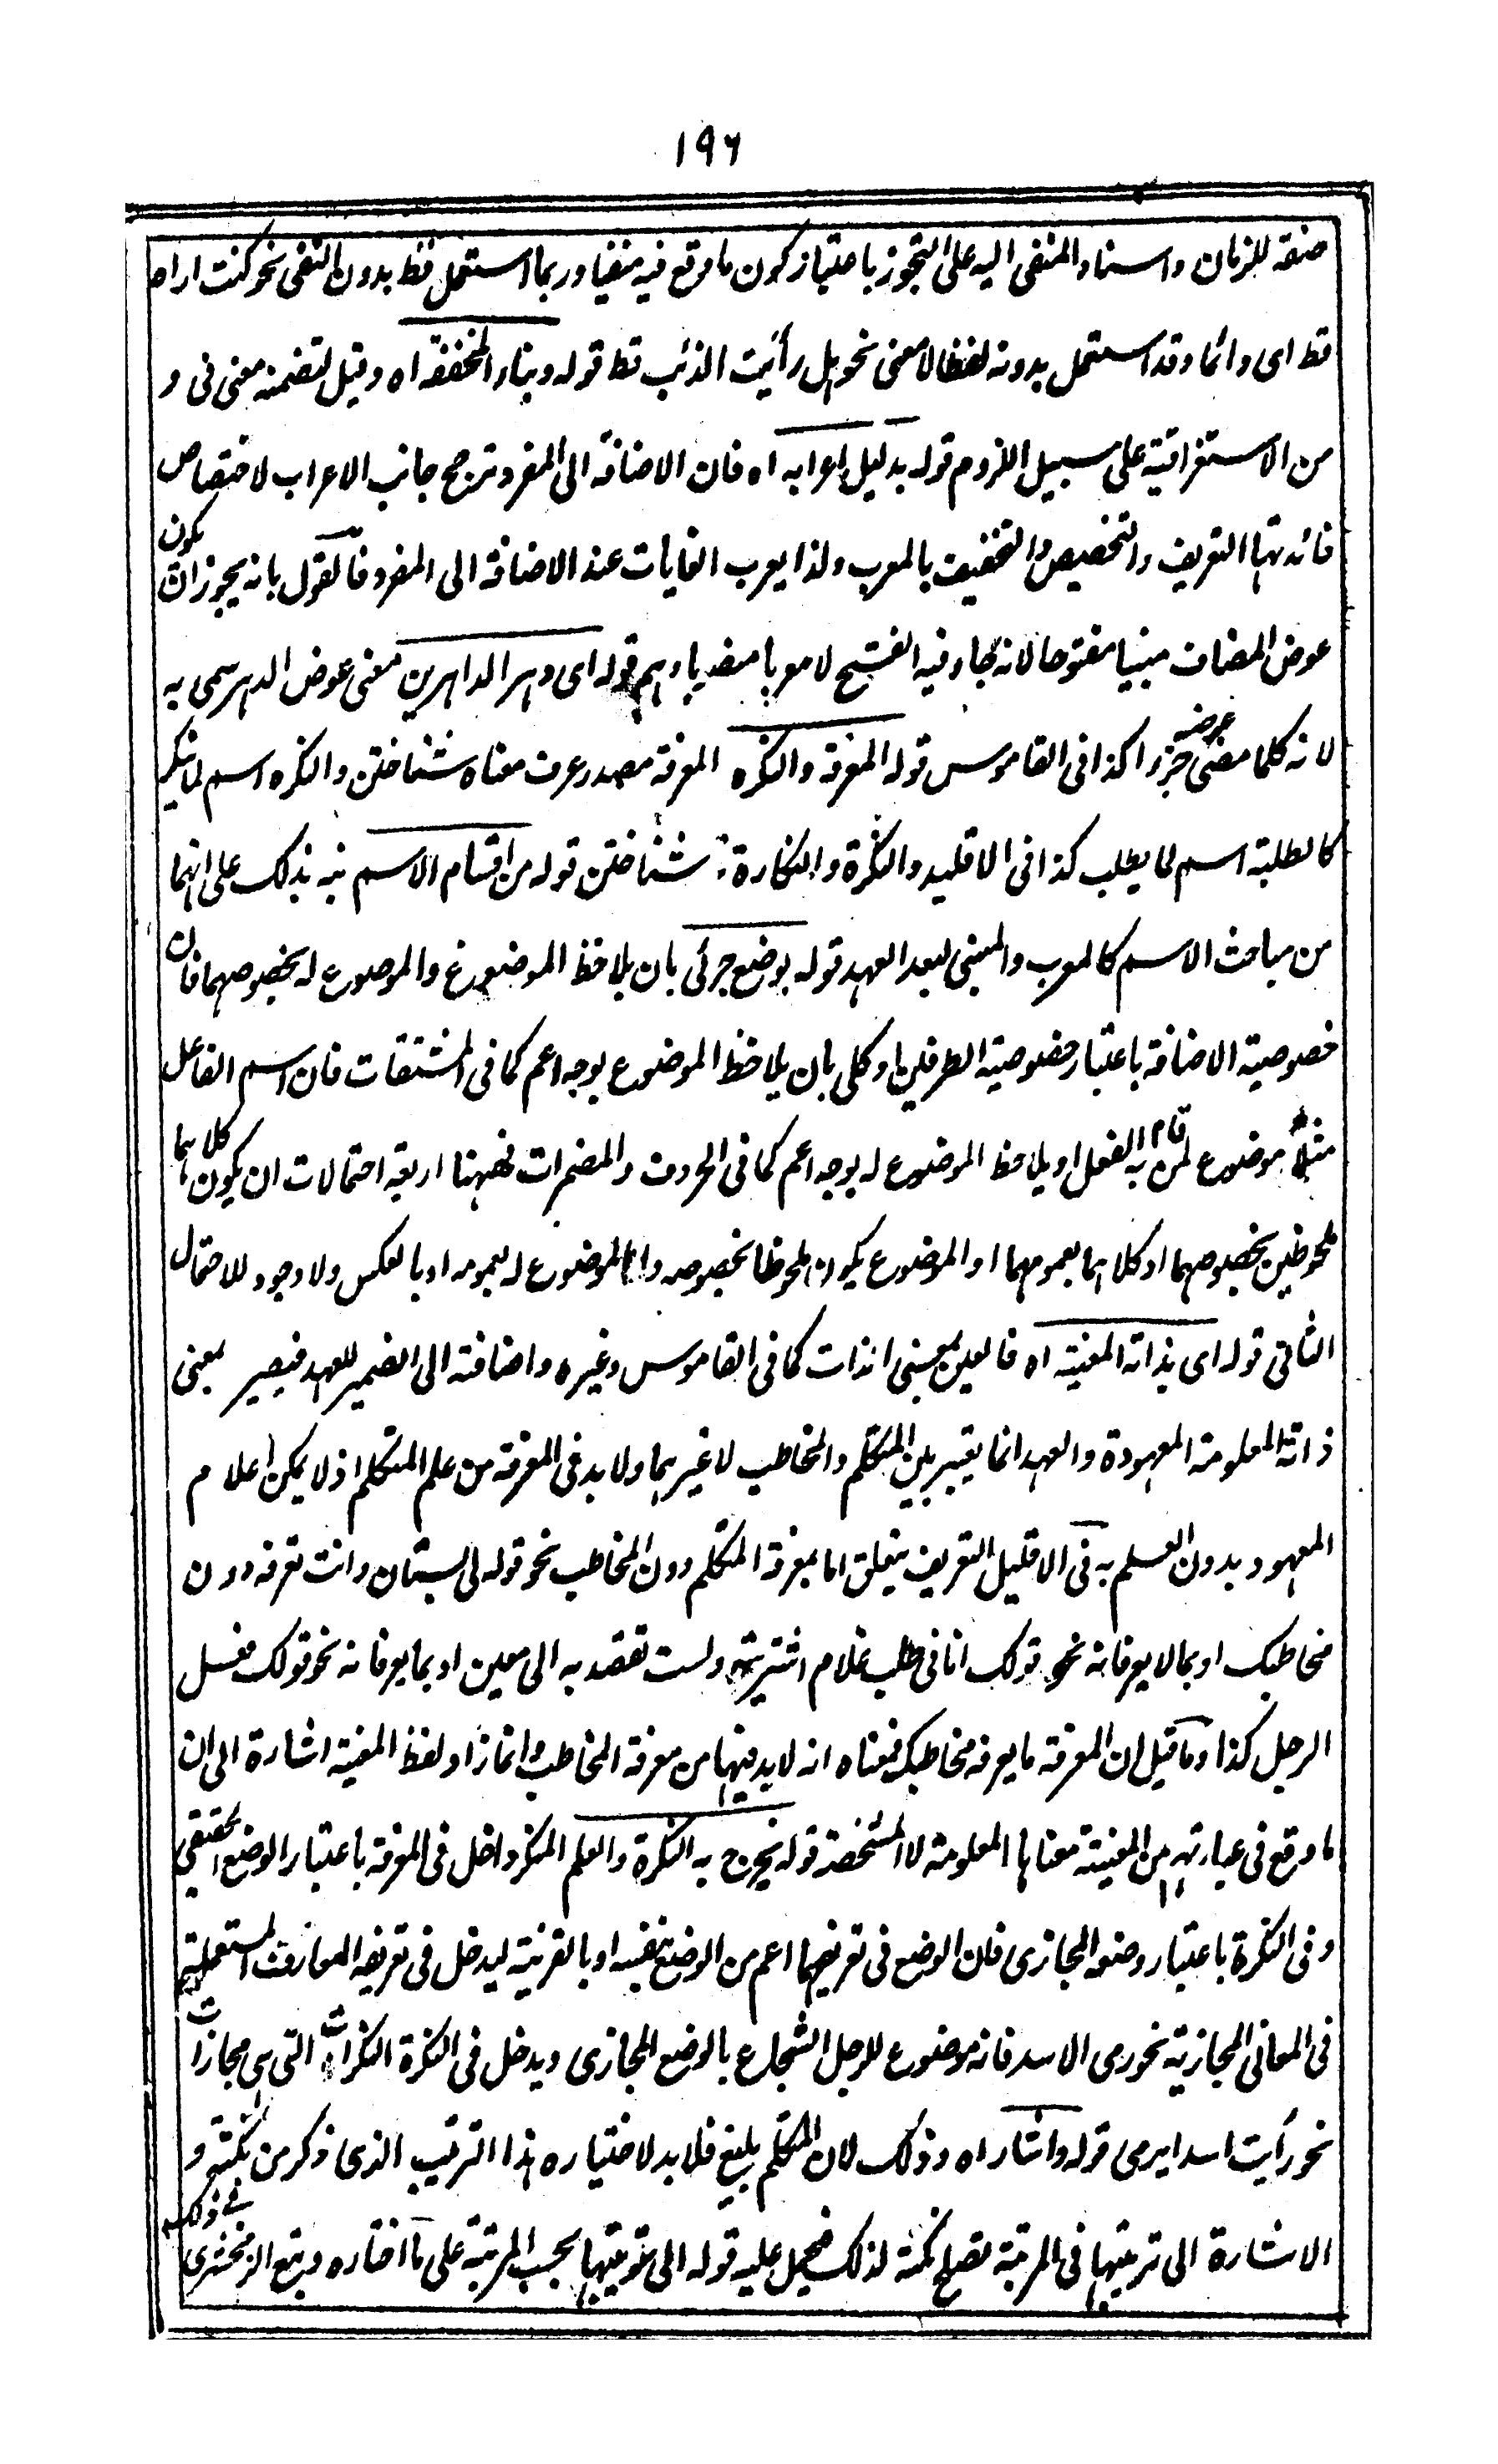 ١٩٦
صفة للزمان واسناد المنفى اليه على التجوز باعتبار كون ما وقع فيه منفيا وربما استعمل قط بدون النفى نحو كنت اراه
قط اى دائما وقد استعمل بدونه لفظا لا معنى نحو هل رأيت الذئب قط قوله وبناء المخففة اه وقيل لتضمنه معنى فى و
من الاستغراقية على سبيل اللزوم قوله بدليل اعرابه اه فان الاضافة الى المفرد ترجح جانب الاعراب لاختصاص
فائدتها التعريف والتخصيص والتخفيف بالمعرب ولذا يعرب الغايات عند الاضافة الى المفرد فالقول بانه يجوز ان يكون
عوض المضاف مبنيا مفتوحا لانه جاء فيه الفتح لا معربا منصوبا وهم قوله اى دهر الداهرين معنى عوض الدهر سمى به
لانه كلما مضى جزء عوضه جزء كذا فى القاموس قوله المعرفة والنكره المعرفة مصدر عرف معناه شناختن والنكره اسم لما ينكر
كالطلبة اسم لما يطلب كذا فى الاقليد والنكرة والنكارة نشناختن قوله من اقسام الاسم نبه بذلك على انهما
من مباحث الاسم كالمعرب والمبنى لبعد العهد قوله بوضع جزئى بان يلاحظ الموضوع والموضوع له بخصوصهما فان
خصوصية الاضافة باعتبار خصوصية الطرفين او كلى بان يلاحظ الموضوع بوجه اعم كما فى المشتقات فان اسم الفاعل
مثلا موضوع لمن قام به الفعل او يلاحظ الموضوع له بوجه اعم كما فى الحروف والمضمرات فههنا اربعة احتمالات ان يكون كلاهما
ملحوظين بخصوصهما او كلاهما بعمومهما او الموضوع يكون ملحوظا بخصوصه والموضوع له بعمومه او بالعكس ولا وجود للاحتمال
الثانى قوله اى بذاته المعينة اه فالعين بمعنى الذات كما فى القاموس وغيره واضافته الى الضمير للعهد فيصير بمعنى
ذاته المعلومة المعهودة والعهد انما يعتبر بين المتكلم والمخاطب لا غيرهما ولا بد فى المعرفة من علم المتكلم اذ لا يمكن اعلام
المعهود بدون العلم به فى الاقليد التعريف يتعلق اما بمعرفة المتكلم دون المخاطب نحو قوله لى بستان وانت تعرفه دون
مخاطبك او بما لا يعرفانه نحو قولك انا فى طلب غلام اشتريته ولست تقصد به الى معين او بما يعرفانه نحو قولك فعل
الرجل كذا وما قيل ان المعرفة ما يعرفه مخاطبك فمعناه انه لا بد فيها من معرفة المخاطب وانما زاد لفظ المعينة اشارة الى ان
ما وقع فى عبارتهم من المعينة معناها المعلومة لا المشخصة قوله يخرج به النكرة والعلم المنكر داخل فى المعرفة باعتبار الوضع الحقيقى
وفى النكرة باعتبار وضعه المجازى فان الوضع فى تعريفهما اعم من الوضع بنفسه او بالقرينة ليدخل فى تعريفه المعارف المستعملة
فى المعانى المجازية نحو رمى الاسد فانه موضوع للرجل الشجاع بالوضع المجازى ويدخل فى النكرة النكرات التى هى مجازات
نحو رأيت اسدا يرمى قوله واشار اه وذلك لان المتكلم بليغ فلا بد لاختياره هذا الترتيب الذى ذكر من نكتة و
الاشارة الى ترتيبها فى المرتبة تصلح نكتة لذلك فحمل عليه قوله الى ترتيبها بحسب المرتبة على ما اختاره وتبع الزمخشرى فى ذلك